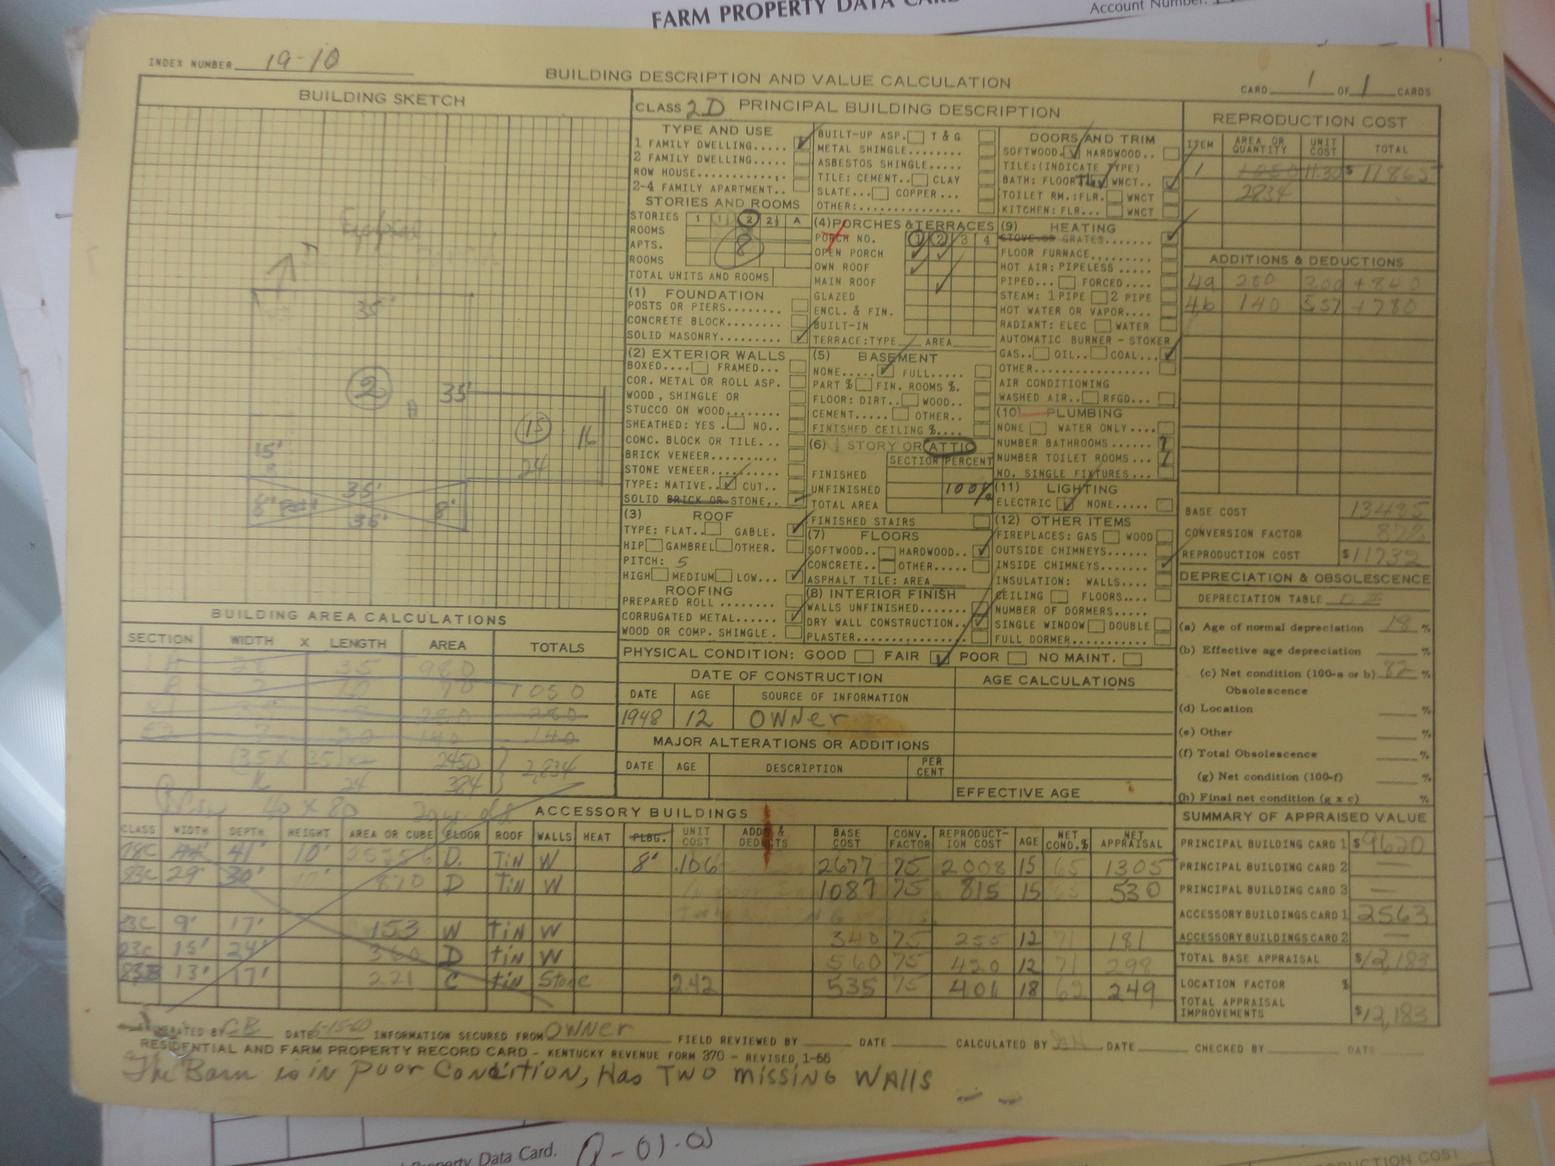 FARM PROPERTY DATA CARD
Account Number:
INDEX NUMBER 19-10
BUILDING DESCRIPTION AND VALUE CALCULATION
CARD 1 OF 1 CARDS
BUILDING SKETCH
35'
2
35'
15
16
24
15'
35'
8'
8'
36'
BUILDING AREA CALCULATIONS
SECTION WIDTH X LENGTH AREA TOTALS
1A 28 35 980
1050
280 280
140 140
(35 X 35) x 2450
2,834
16 24 384
40 X 80
CLASS 2D PRINCIPAL BUILDING DESCRIPTION
TYPE AND USE
1 FAMILY DWELLING.....
2 FAMILY DWELLING....
ROW HOUSE............
2-4 FAMILY APARTMENT..
STORIES AND ROOMS
STORIES 1 1½ 2 2½ A
ROOMS 8
APTS.
ROOMS
TOTAL UNITS AND ROOMS
(1) FOUNDATION
POSTS OR PIERS.......
CONCRETE BLOCK........
SOLID MASONRY.......
(2) EXTERIOR WALLS
BOXED.... FRAMED...
COR. METAL OR ROLL ASP.
WOOD, SHINGLE OR
STUCCO ON WOOD.......
SHEATHED: YES. NO..
CONC. BLOCK OR TILE...
BRICK VENEER.........
STONE VENEER.........
TYPE: NATIVE.. CUT...
SOLID BRICK OR STONE..
(3) ROOF
TYPE: FLAT.. GABLE.
HIP GAMBREL OTHER.
PITCH: 5
HIGH MEDIUM LOW...
ROOFING
PREPARED ROLL ........
CORRUGATED METAL......
WOOD OR COMP. SHINGLE.
BUILT-UP ASP. T & G
METAL SHINGLE........
ASBESTOS SHINGLE.....
TILE: CEMENT.. CLAY
SLATE... COPPER...
OTHER:..............
(4) PORCHES & TERRACES
PORCH NO. 1 2 3 4
OPEN PORCH
OWN ROOF
MAIN ROOF
GLAZED
ENCL. & FIN.
BUILT-IN
TERRACE: TYPE AREA
(5) BASEMENT
NONE..... FULL.....
PART % FIN. ROOMS %.
FLOOR: DIRT.. WOOD...
CEMENT..... OTHER..
FINISHED CEILING %....
(6) ½ STORY OR ATTIC
SECTION PERCENT
FINISHED
UNFINISHED 100%
TOTAL AREA
FINISHED STAIRS
(7) FLOORS
SOFTWOOD.. HARDWOOD..
CONCRETE.. OTHER.....
ASPHALT TILE: AREA
(8) INTERIOR FINISH
WALLS UNFINISHED.......
DRY WALL CONSTRUCTION..
PLASTER..............
DOORS AND TRIM
SOFTWOOD. HARDWOOD..
TILE: (INDICATE TYPE)
BATH: FLOOR WNCT..
TOILET RM.: FLR. WNCT
KITCHEN: FLR... WNCT
(9) HEATING
STOVE OR GRATES.......
FLOOR FURNACE........
HOT AIR: PIPELESS .....
PIPED... FORCED....
STEAM: 1 PIPE 2 PIPE
HOT WATER OR VAPOR....
RADIANT: ELEC WATER
AUTOMATIC BURNER - STOKER
GAS.. OIL.. COAL..
OTHER..............
AIR CONDITIONING
WASHED AIR.. RFGD...
(10) PLUMBING
NONE WATER ONLY....
NUMBER BATHROOMS ......
NUMBER TOILET ROOMS ...
NO. SINGLE FIXTURES....
(11) LIGHTING
ELECTRIC NONE.....
(12) OTHER ITEMS
FIREPLACES: GAS WOOD
OUTSIDE CHIMNEYS......
INSIDE CHIMNEYS.......
INSULATION: WALLS....
CEILING FLOORS....
NUMBER OF DORMERS.....
SINGLE WINDOW DOUBLE
FULL DORMER..........
PHYSICAL CONDITION: GOOD FAIR POOR NO MAINT.
DATE OF CONSTRUCTION
DATE AGE SOURCE OF INFORMATION
1948 12 OWNER
MAJOR ALTERATIONS OR ADDITIONS
DATE AGE DESCRIPTION PER CENT
AGE CALCULATIONS
EFFECTIVE AGE
REPRODUCTION COST
ITEM AREA OR QUANTITY UNIT COST TOTAL
1 1050 11.30 $11865
2834
ADDITIONS & DEDUCTIONS
4a 280 3.00 +840
4b 140 5.57 +780
BASE COST 13485
CONVERSION FACTOR 87%
REPRODUCTION COST $11732
DEPRECIATION & OBSOLESCENCE
DEPRECIATION TABLE
(a) Age of normal depreciation 18 %
(b) Effective age depreciation %
(c) Net condition (100-a or b) 82 %
Obsolescence
(d) Location %
(e) Other %
(f) Total Obsolescence %
(g) Net condition (100-f) %
(h) Final net condition (g x c) %
SUMMARY OF APPRAISED VALUE
PRINCIPAL BUILDING CARD 1 $9620
PRINCIPAL BUILDING CARD 2 —
PRINCIPAL BUILDING CARD 3 —
ACCESSORY BUILDINGS CARD 1 2563
ACCESSORY BUILDINGS CARD 2 —
TOTAL BASE APPRAISAL $12,183
LOCATION FACTOR %
TOTAL APPRAISAL IMPROVEMENTS $12,183
ACCESSORY BUILDINGS
CLASS WIDTH DEPTH HEIGHT AREA OR CUBE FLOOR ROOF WALLS HEAT PLBG. UNIT COST ADDS & DEDUCTS BASE COST CONV. FACTOR REPRODUCTION COST AGE NET COND.% NET APPRAISAL
78C 41' 10' 25256 D. TiN W 8' .106 2677 75 2008 15 65 1305
83C 29' 30' 870 D TiN W 1087 75 815 15 65 530
83C 9' 17' 153 W tiN W 340 75 255 12 71 181
83C 15' 24' 360 D tiN W 560 75 420 12 71 298
83B 13' 17' 221 C tin Stone 2.42 535 75 401 18 62 249
BY CB DATE 6-15-60 INFORMATION SECURED FROM OWNER FIELD REVIEWED BY DATE CALCULATED BY DATE CHECKED BY DATE
RESIDENTIAL AND FARM PROPERTY RECORD CARD - KENTUCKY REVENUE FORM 370 - REVISED 1-66
The Barn is in poor Condition, Has TWO missing WAlls
Property Data Card.